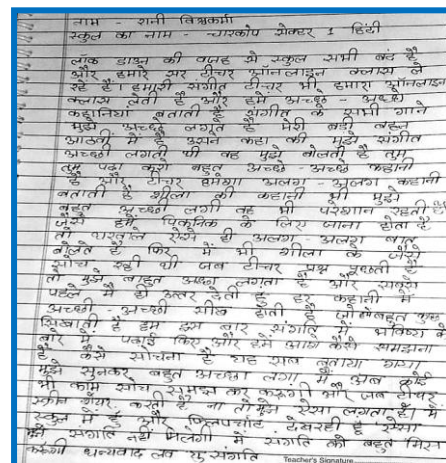 नाम - रानी विश्वकर्मा
स्कूल का नाम - चारकोप सेक्टर 1 हिंदी
लॉक डाउन की वजह से स्कूल सभी बंद है
और हमारे सर टीचर ऑनलाइन क्लास ले
रहे हैं। हमारी संगीत टीचर भी हमारा ऑनलाइन
क्लास लेती है और हमें अच्छे - अच्छे
कहानियां बताती है संगीत के सभी गाने
मुझे अच्छे लगते है मेरी बड़ी बहन
आठवीं में है उसने कहा की मुझे संगीत
अच्छी लगती थी वह मुझे बोलती है तुम
तुम पढ़ा करो बहुत अच्छे - अच्छे कहानी
है और टीचर हमेशा अलग - अलग कहानी
बताती है शीला की कहानी भी मुझे
बहुत अच्छी लगी वह भी परेशान रहती है
जैसे हमें पिकनिक के लिए जाना होता है
तो घरवाले ऐसे ही अलग - अलग बात
बोलते है फिर मैं भी शीला के जैसे
सोच रही थी जब टीचर प्रश्न पूछती है
तो मुझे बहुत अच्छा लगता है और सबसे
पहले मैं ही उत्तर देती हूं हर कहानी में
अच्छी - अच्छी सीख होती है जो हमें बहुत कुछ
सिखाती है हम इस बार संगति में भविष्य के
बारे में पढ़ाई किए और हमें आगे कैसे समझना
है कैसे सोचना है यह सब बताया गया
मुझे सुनकर बहुत अच्छा लगा मैं अब कोई
भी काम सोच समझ कर करूंगी और जब टीचर
स्क्रीन शेयर करती है ना तो मुझे ऐसा लगता है। मैं
स्कूल में हूं और
संगति नहीं मिलेगी मैं संगति को बहुत मिस
करूंगी धन्यवाद लव यू संगति
Teacher's Signature